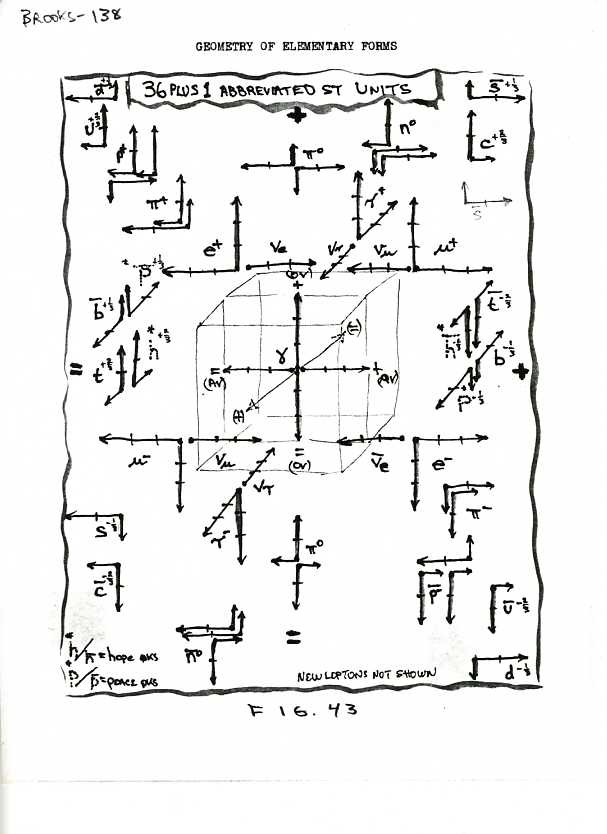 BROOKS-138
GEOMETRY OF ELEMENTARY FORMS
36 PLUS 1 ABBREVIATED ST UNITS
+
s̄+⅓
U+⅔
c+⅔
P+
π°
n°
π+
τ+
s
e+
νe
ντ
νμ
μ+
(OV)
+
p̄+⅓
b̄+⅓
t̄-⅔
(=)
h+⅔
t+⅔
b-⅓
=
γ
=
(AV)
+
(AV)
+
(+)
=
(OV)
μ-
νμ
ν̄e
e-
ντ
τ-
π-
s-⅓
π°
c̄-⅔
p̄
ū-⅔
n̄°
=
h/h̄ = hope qks
p/p̄ = peace qks
NEW LEPTONS NOT SHOWN
d-⅓
FIG. 43